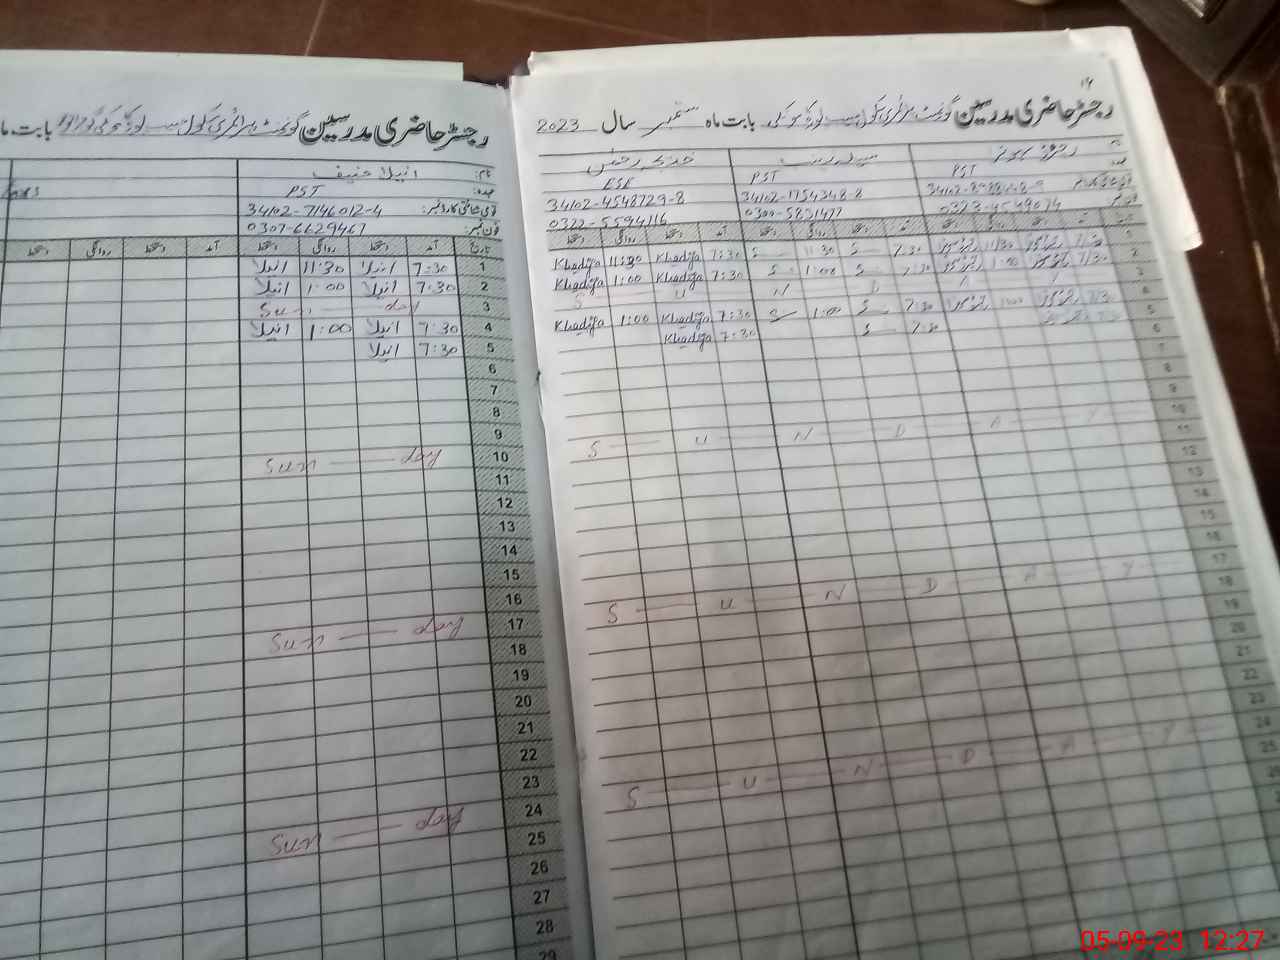 ۱۴
رجسٹر حاضری مدرسین گورنمنٹ پرائمری سکول بابت ماہ ستمبر سال 2023
نام
خدیجہ رحمٰن
PST
PST
ESE
34102-1754348-8
34102-4548729-8
0300-5831477
0322-5594116
تاریخ آمد دستخط روانگی دستخط آمد دستخط روانگی دستخط آمد دستخط روانگی دستخط
1 7:30 11:30 7:30 S 11:30 S 7:30 Khadija 11:30 Khadija
2 7:30 1:00 7:30 S 1:00 S 7:30 Khadija 1:00 Khadija
3 S U N D A Y
4 7:30 1:00 7:30 S 1:00 S 7:30 Khadija 1:00 Khadija
5 7:30 S 7:30 Khadija
6
7
8
9
10 S U N D A Y
11
12
13
14
15
16
17 S U N D A Y
18
19
20
21
22
23
24 S U N D A Y
25
رجسٹر حاضری مدرسین گورنمنٹ پرائمری سکول بابت ما
نام: انیلا حنیف
عہدہ: PST
قومی شناختی کارڈ نمبر: 34102-7146012-4
فون نمبر: 0307-6629467
تاریخ آمد دستخط روانگی دستخط آمد دستخط روانگی دستخط
1 7:30 انیلا 11:30 انیلا
2 7:30 انیلا 1:00 انیلا
3 Sun day
4 7:30 انیلا 1:00 انیلا
5 7:30 انیلا
6
7
8
9
10 Sun day
11
12
13
14
15
16
17 Sun day
18
19
20
21
22
23
24 Sun day
25
26
27
28
29
05-09-23 12:27